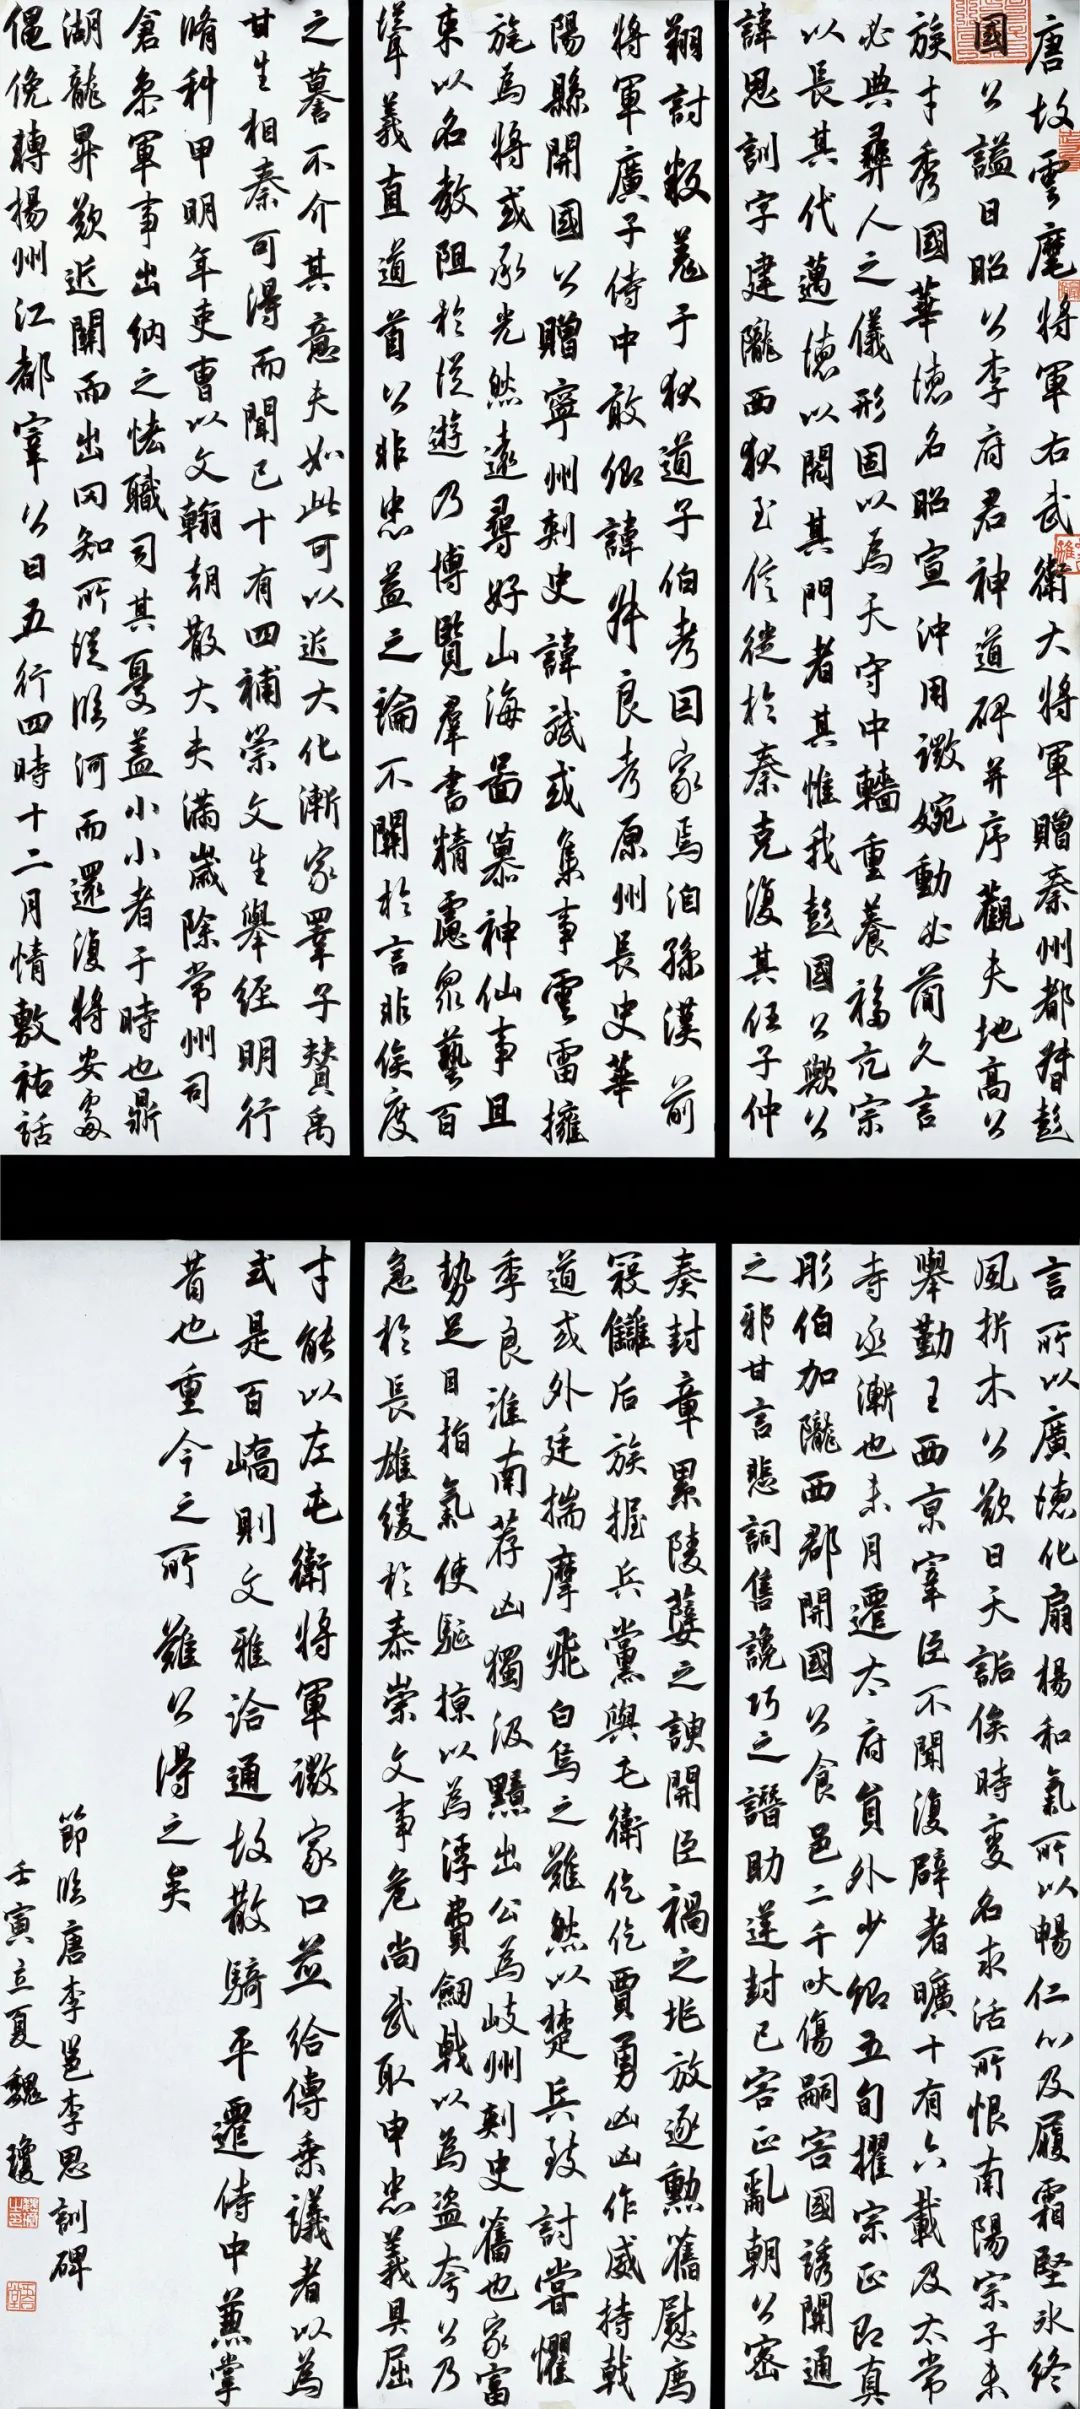 唐故雲麾將軍右武衛大將軍贈秦州都督彭
國公謚曰昭公李府君神道碑并序觀夫地高公
族才秀國華德名昭宣沖用微婉動必簡久言
必典彝人之儀形固以為天守中轖重養福元宗
以長其代邁德以閎其門者其惟我彭國公歟公
諱思訓字建隴西狄至信徙於秦克復其任子仲
翔討叛羌于狄道子伯考因家焉洎孫漢前
將軍廣子侍中敢卿諱昇良考原州長史華
陽縣開國公贈寧州刺史諱斌或集事雲雷擁
旄為將或承光然遠尋好山海圖慕神仙事且
束以名教阻於從遊乃博覽群書精慮眾藝百
聳義直道首公非忠益之論不關於言非侯度
之謩不介其意夫如此可以近大化漸家羣子贊禹
甘生相秦可得而聞已十有四補崇文生舉經明行
脩科甲明年吏曹以文翰朝散大夫滿歲除常州司
倉參軍事出納之恡職司其憂蓋小小者于時也鼎
湖龍昇歎近關而出罔知所從臨河而還復將安處
僶俛轉揚州江都宰公曰五行四時十二月情敷祐話
言所以廣德化扇楊和氣所以暢仁心及履霜堅冰終
風折木公歎曰天詬俟時變名求活所恨南陽宗子未
舉勤王西京宰臣不聞復辟者曠十有六載及太常
寺丞漸也未月遷太府員外少卿五旬擢宗正即真
彤伯加隴西郡開國公食邑二千吠傷嗣害國誘關通
之邪甘言悲詞售讒巧之譖助逆封已害正亂朝公密
奏封章累陵孽之諛開臣禍之兆放逐勲舊慰薦
寇讎后族握兵黨與屯衛仡仡賈勇凶凶作威持戟
道或外廷揣摩飛白烏之難然以楚兵致討嘗懼
季良淮南荐凶獨汲黯出公為岐州刺史舊也家富
勢足目指氣使驅掠以為浮費劔戟以為盜夸公乃
急於長雄緩於泰崇文事危尚武取申忠義具屈
才能以左屯衛將軍徵家口並給傳乘議者以為
式是百嶠則文雅洽通故散騎平遷侍中兼掌
昔也重今之所難公得之矣
節臨唐李邕李思訓碑
壬寅立夏魏瓊